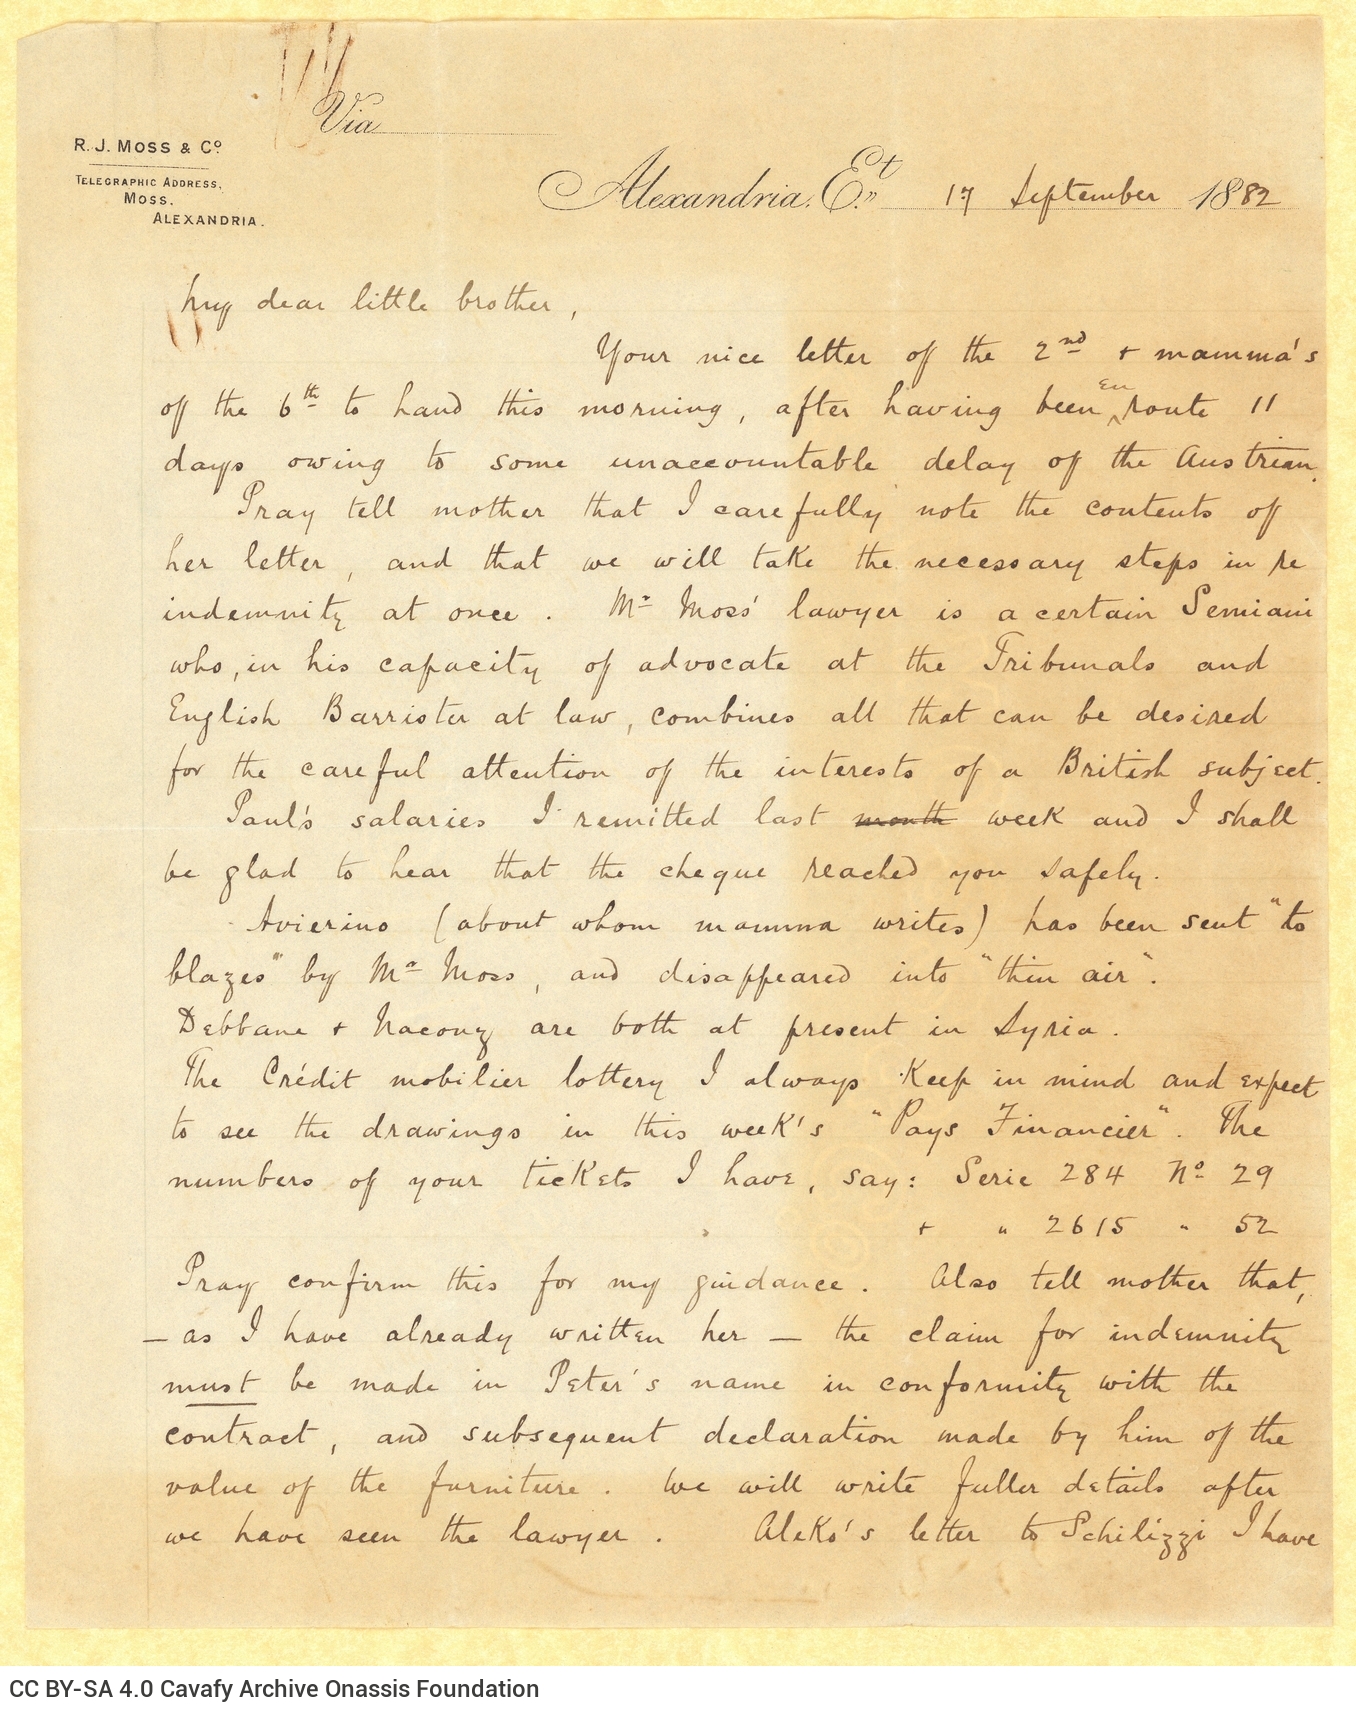 Via
R. J. MOSS & Cº
TELEGRAPHIC ADDRESS.
MOSS.
ALEXANDRIA.
Alexandria. Et. 17 September 1882
My dear little brother,
Your nice letter of the 2nd + mamma's
of the 6th to hand this morning, after having been En route 11
days owing to some unaccountable delay of the Austrian.
Pray tell mother that I carefully note the contents of
her letter, and that we will take the necessary steps in re
indemnity at once. Mr Moss' lawyer is a certain Semiani
who, in his capacity of advocate at the Tribunals and
English Barrister at law, combines all that can be desired
for the careful attention of the interests of a British subject.
Paul's salaries I remitted last month week and I shall
be glad to hear that the cheque reached you safely.
Avierino (about whom mamma writes) has been sent "to
blazes" by Mr Moss, and disappeared into "thin air".
Debbane + Nacouz are both at present in Syria.
The Crédit mobilier lottery I always keep in mind and expect
to see the drawings in this week's "Pays Financier". The
numbers of your tickets I have, say: Serie 284 Nº 29
+ " 2615 " 52
Pray confirm this for my guidance. Also tell mother that,
— as I have already written her — the claim for indemnity
must be made in Peter's name in conformity with the
contract, and subsequent declaration made by him of the
value of the furniture. We will write fuller details after
we have seen the lawyer. Aleko's letter to Schilizzi I have
CC BY-SA 4.0 Cavafy Archive Onassis Foundation